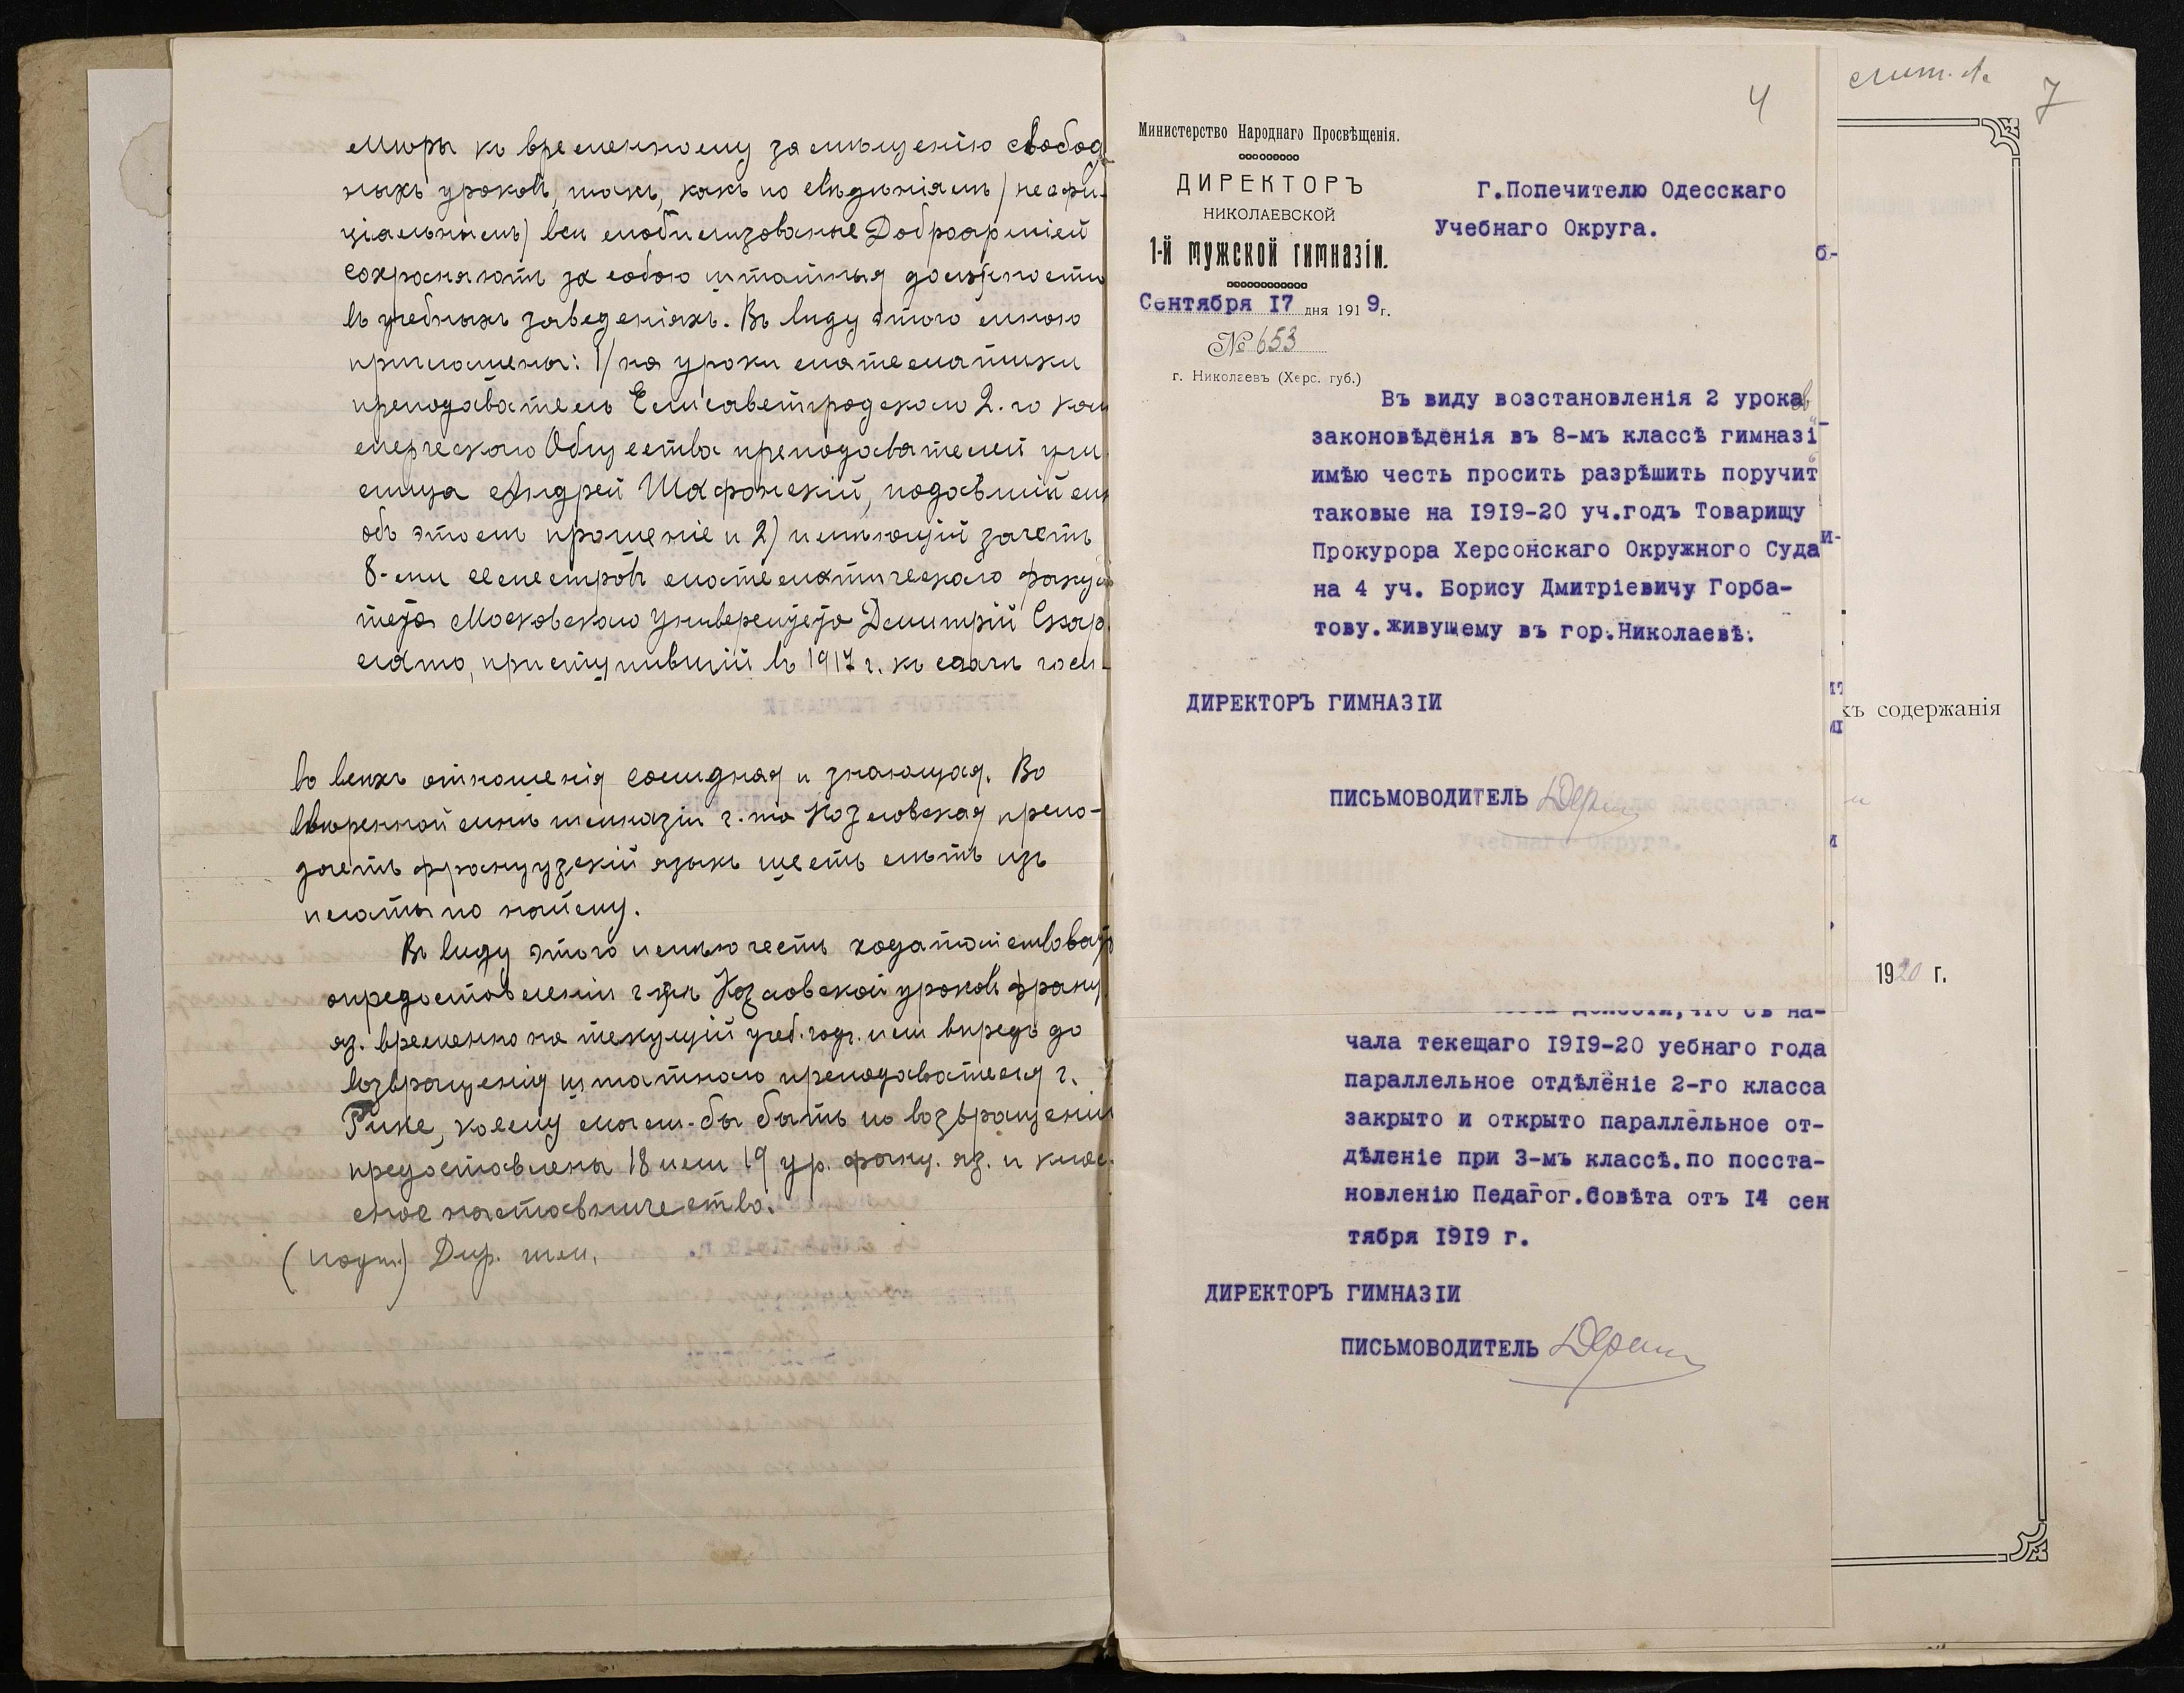 мѣры къ временному замѣщенію свобод
ныхъ уроковъ, такъ, какъ по свѣдѣніямъ (неофи-
ціальнымъ) всѣ мобилизованые Доброарміей
сохраняютъ за собою штатныя должности
въ учебныхъ заведеніяхъ. Въ виду этого мною
приглашены: 1) на уроки математики
преподаватель Елисаветградскаго 2-го ком
мерческаго Общества преподавателей учи
лища Андрей Шафонскій, подавшій мн
объ этомъ прошеніе и 2) имѣющій зачетъ
8-ми семестровъ математическаго факул
тета Московскаго Университета Димитрій Скар
лато, приступившій въ 1917 г. къ сдачѣ госу-
во всѣхъ отношенія солидная и знающая. Во
ввѣренной мнѣ гимназіи г-жа Козловская препо-
даетъ французскій языкъ шесть лѣтъ изъ
платы по найму.
Въ виду этого имѣю честь ходатайствовать
о предоставленіи г-жѣ Козловской уроковъ франц.
яз. временно на текущій учеб. годъ. или впредь до
возвращенія штатнаго преподавателя г.
Рике, коему могли-бы быть по возвращеніи
предоставлены 18 или 19 ур. франц. яз. и клас-
сное наставничество.
(подп.) Дир. гим.
4
Министерство Народнаго Просвѣщенія.
ДИРЕКТОРЪ
НИКОЛАЕВСКОЙ
1-й мужской гимназіи.
Сентября 17 дня 1919г.
№ 653
г. Николаевъ (Херс. губ.)
Г.Попечителю Одесскаго
Учебнаго Округа.
Въ виду возстановленія 2 уроков
законовѣденія въ 8-мъ классѣ гимназі
имѣю честь просить разрѣшить поручит
таковые на 1919-20 уч.годъ Товарищу
Прокурора Херсонскаго Окружного Суда
на 4 уч. Борису Дмитріевичу Горба-
тову.живущему въ гор.Николаевѣ.
ДИРЕКТОРЪ ГИМНАЗІИ
ПИСЬМОВОДИТЕЛЬ
что съ на-
чала текещаго 1919-20 уебнаго года
параллельное отдѣленіе 2-го класса
закрыто и открыто параллельное от-
дѣленіе при 3-мъ классѣ.по посста-
новленію Педагог.Совѣта отъ 14 сен
тября 1919 г.
ДИРЕКТОРЪ ГИМНАЗІИ
ПИСЬМОВОДИТЕЛЬ
7
хъ содержанія
1920 г.